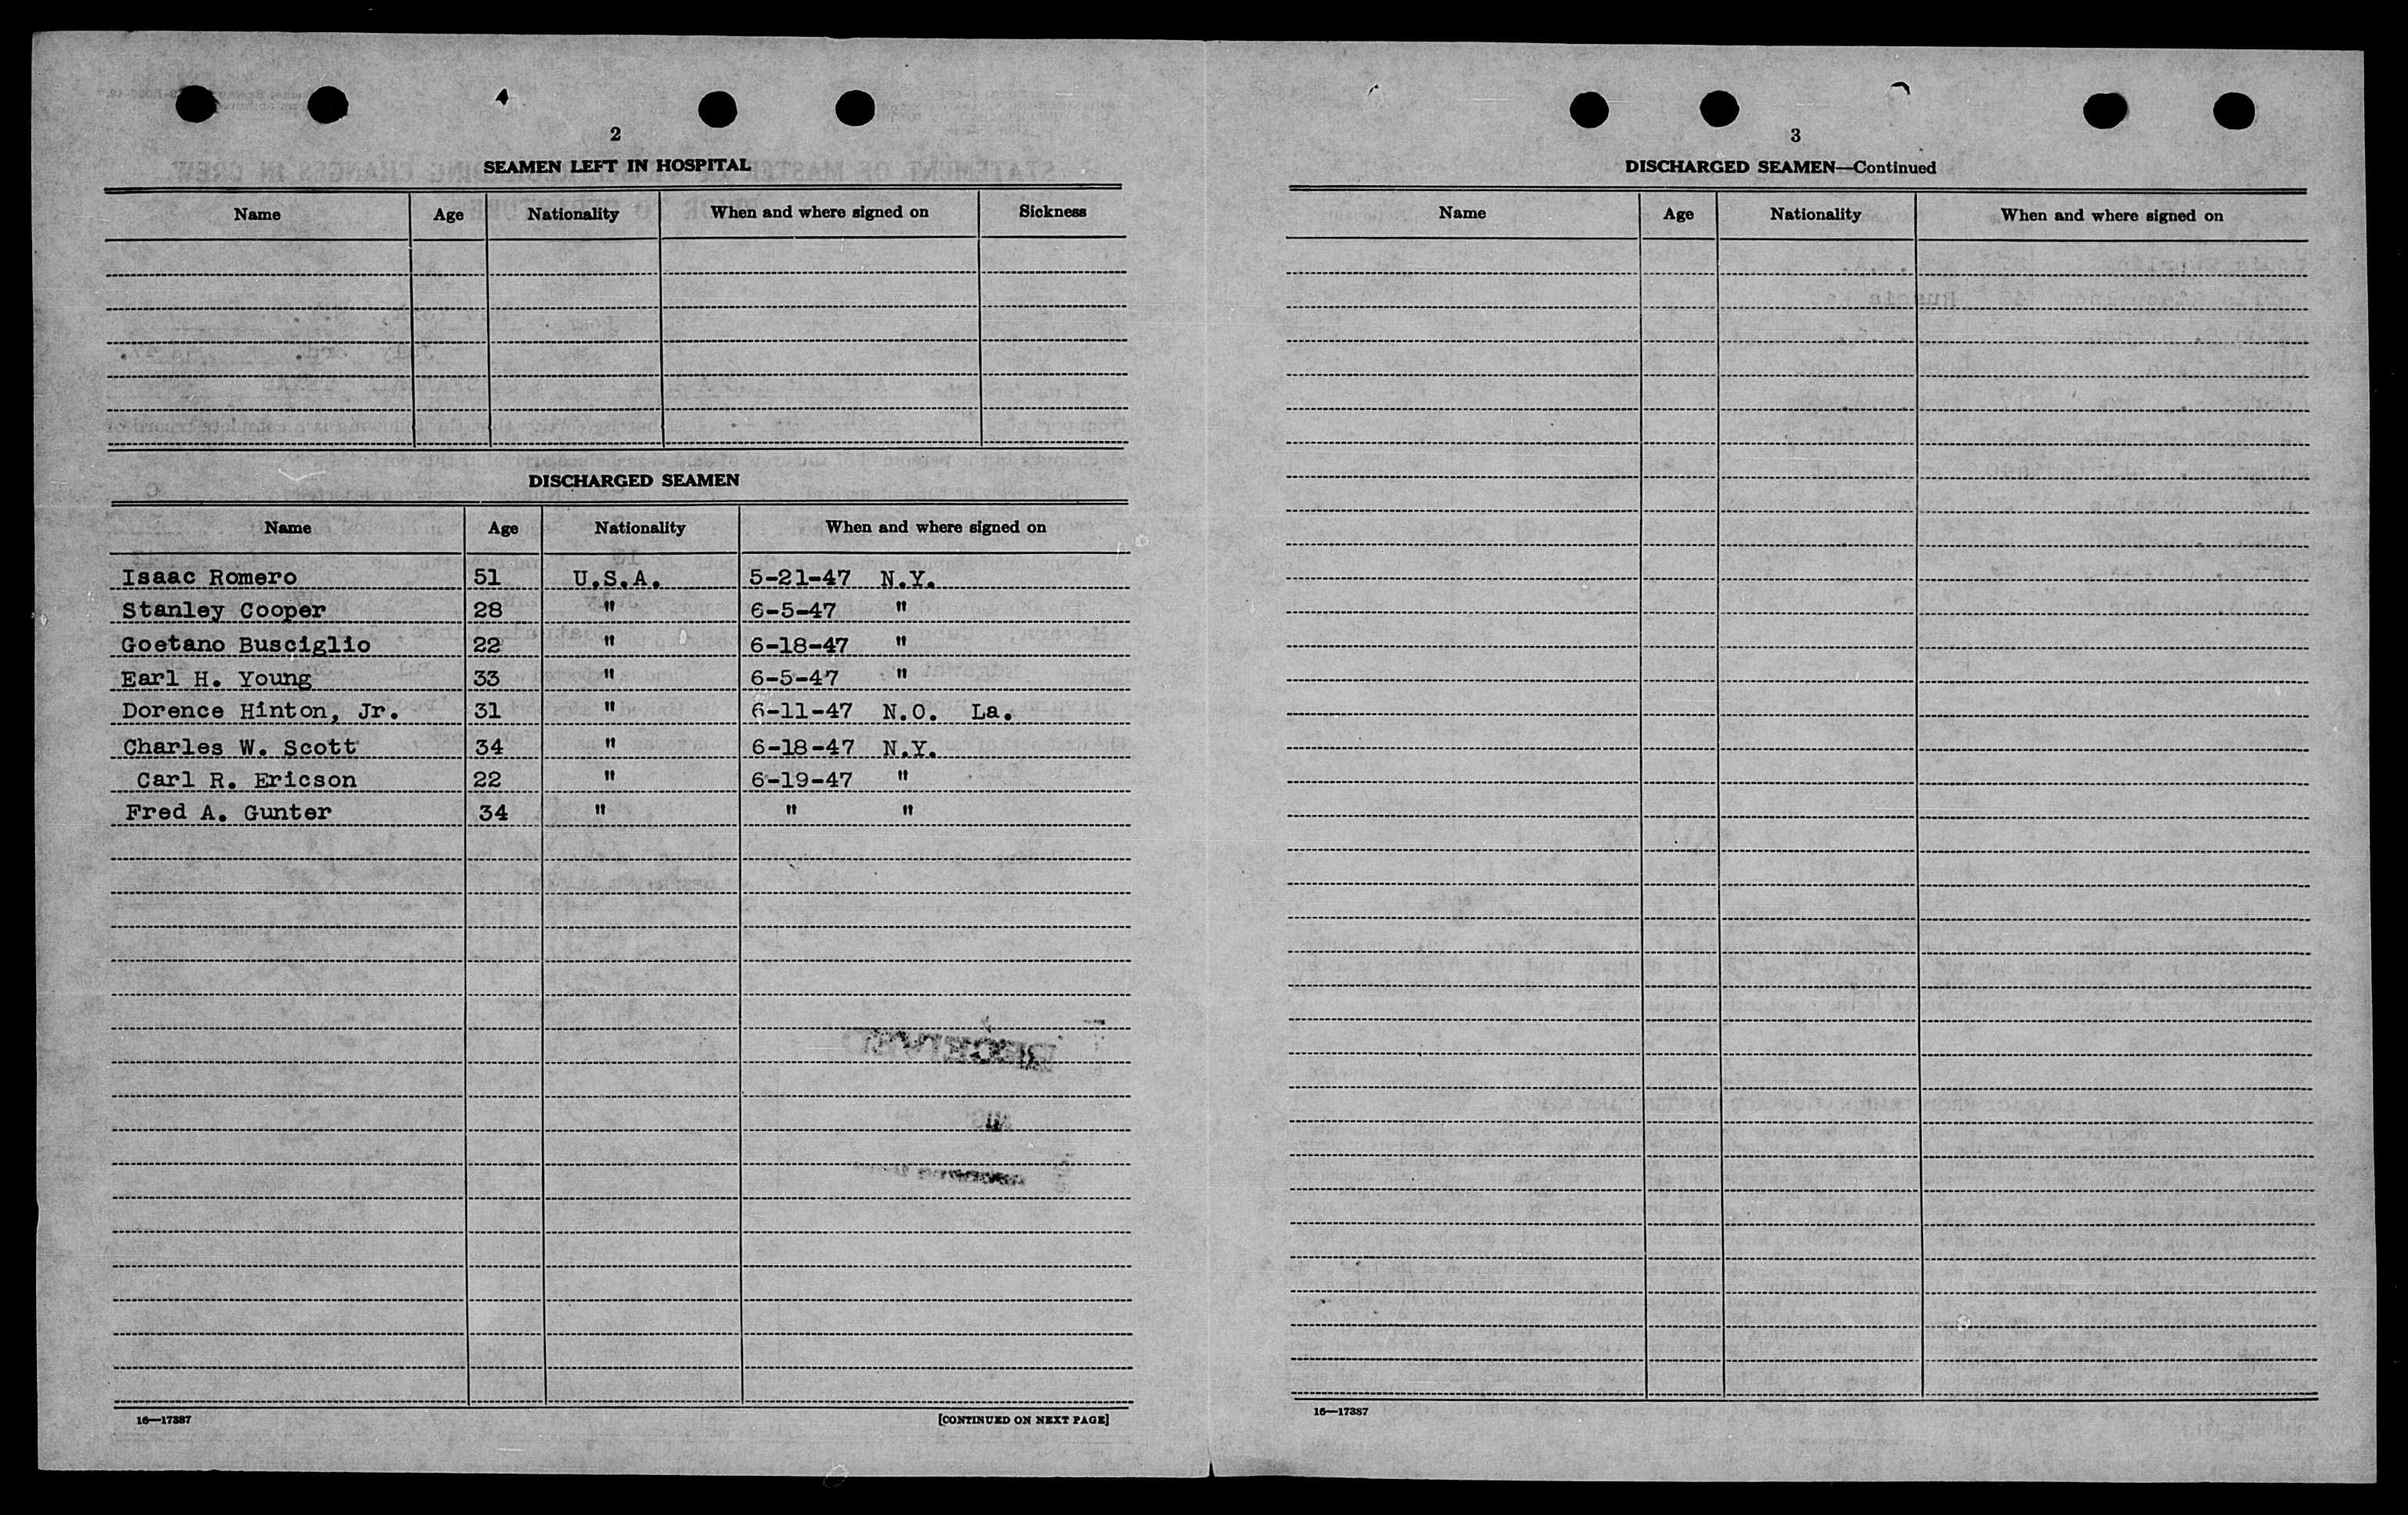 2
SEAMEN LEFT IN HOSPITAL
Name Age Nationality When and where signed on Sickness
DISCHARGED SEAMEN
Name Age Nationality When and where signed on
Isaac Romero 51 U.S.A. 5-21-47 N.Y.
Stanley Cooper 28 " 6-5-47 "
Goetano Busciglio 22 " 6-18-47 "
Earl H. Young 33 " 6-5-47 "
Dorence Hinton, Jr. 31 " 6-11-47 N.O. La.
Charles W. Scott 34 " 6-18-47 N.Y.
Carl R. Ericson 22 " 6-19-47 "
Fred A. Gunter 34 " " "
16—17387
[CONTINUED ON NEXT PAGE]
3
DISCHARGED SEAMEN—Continued
Name Age Nationality When and where signed on
16—17387